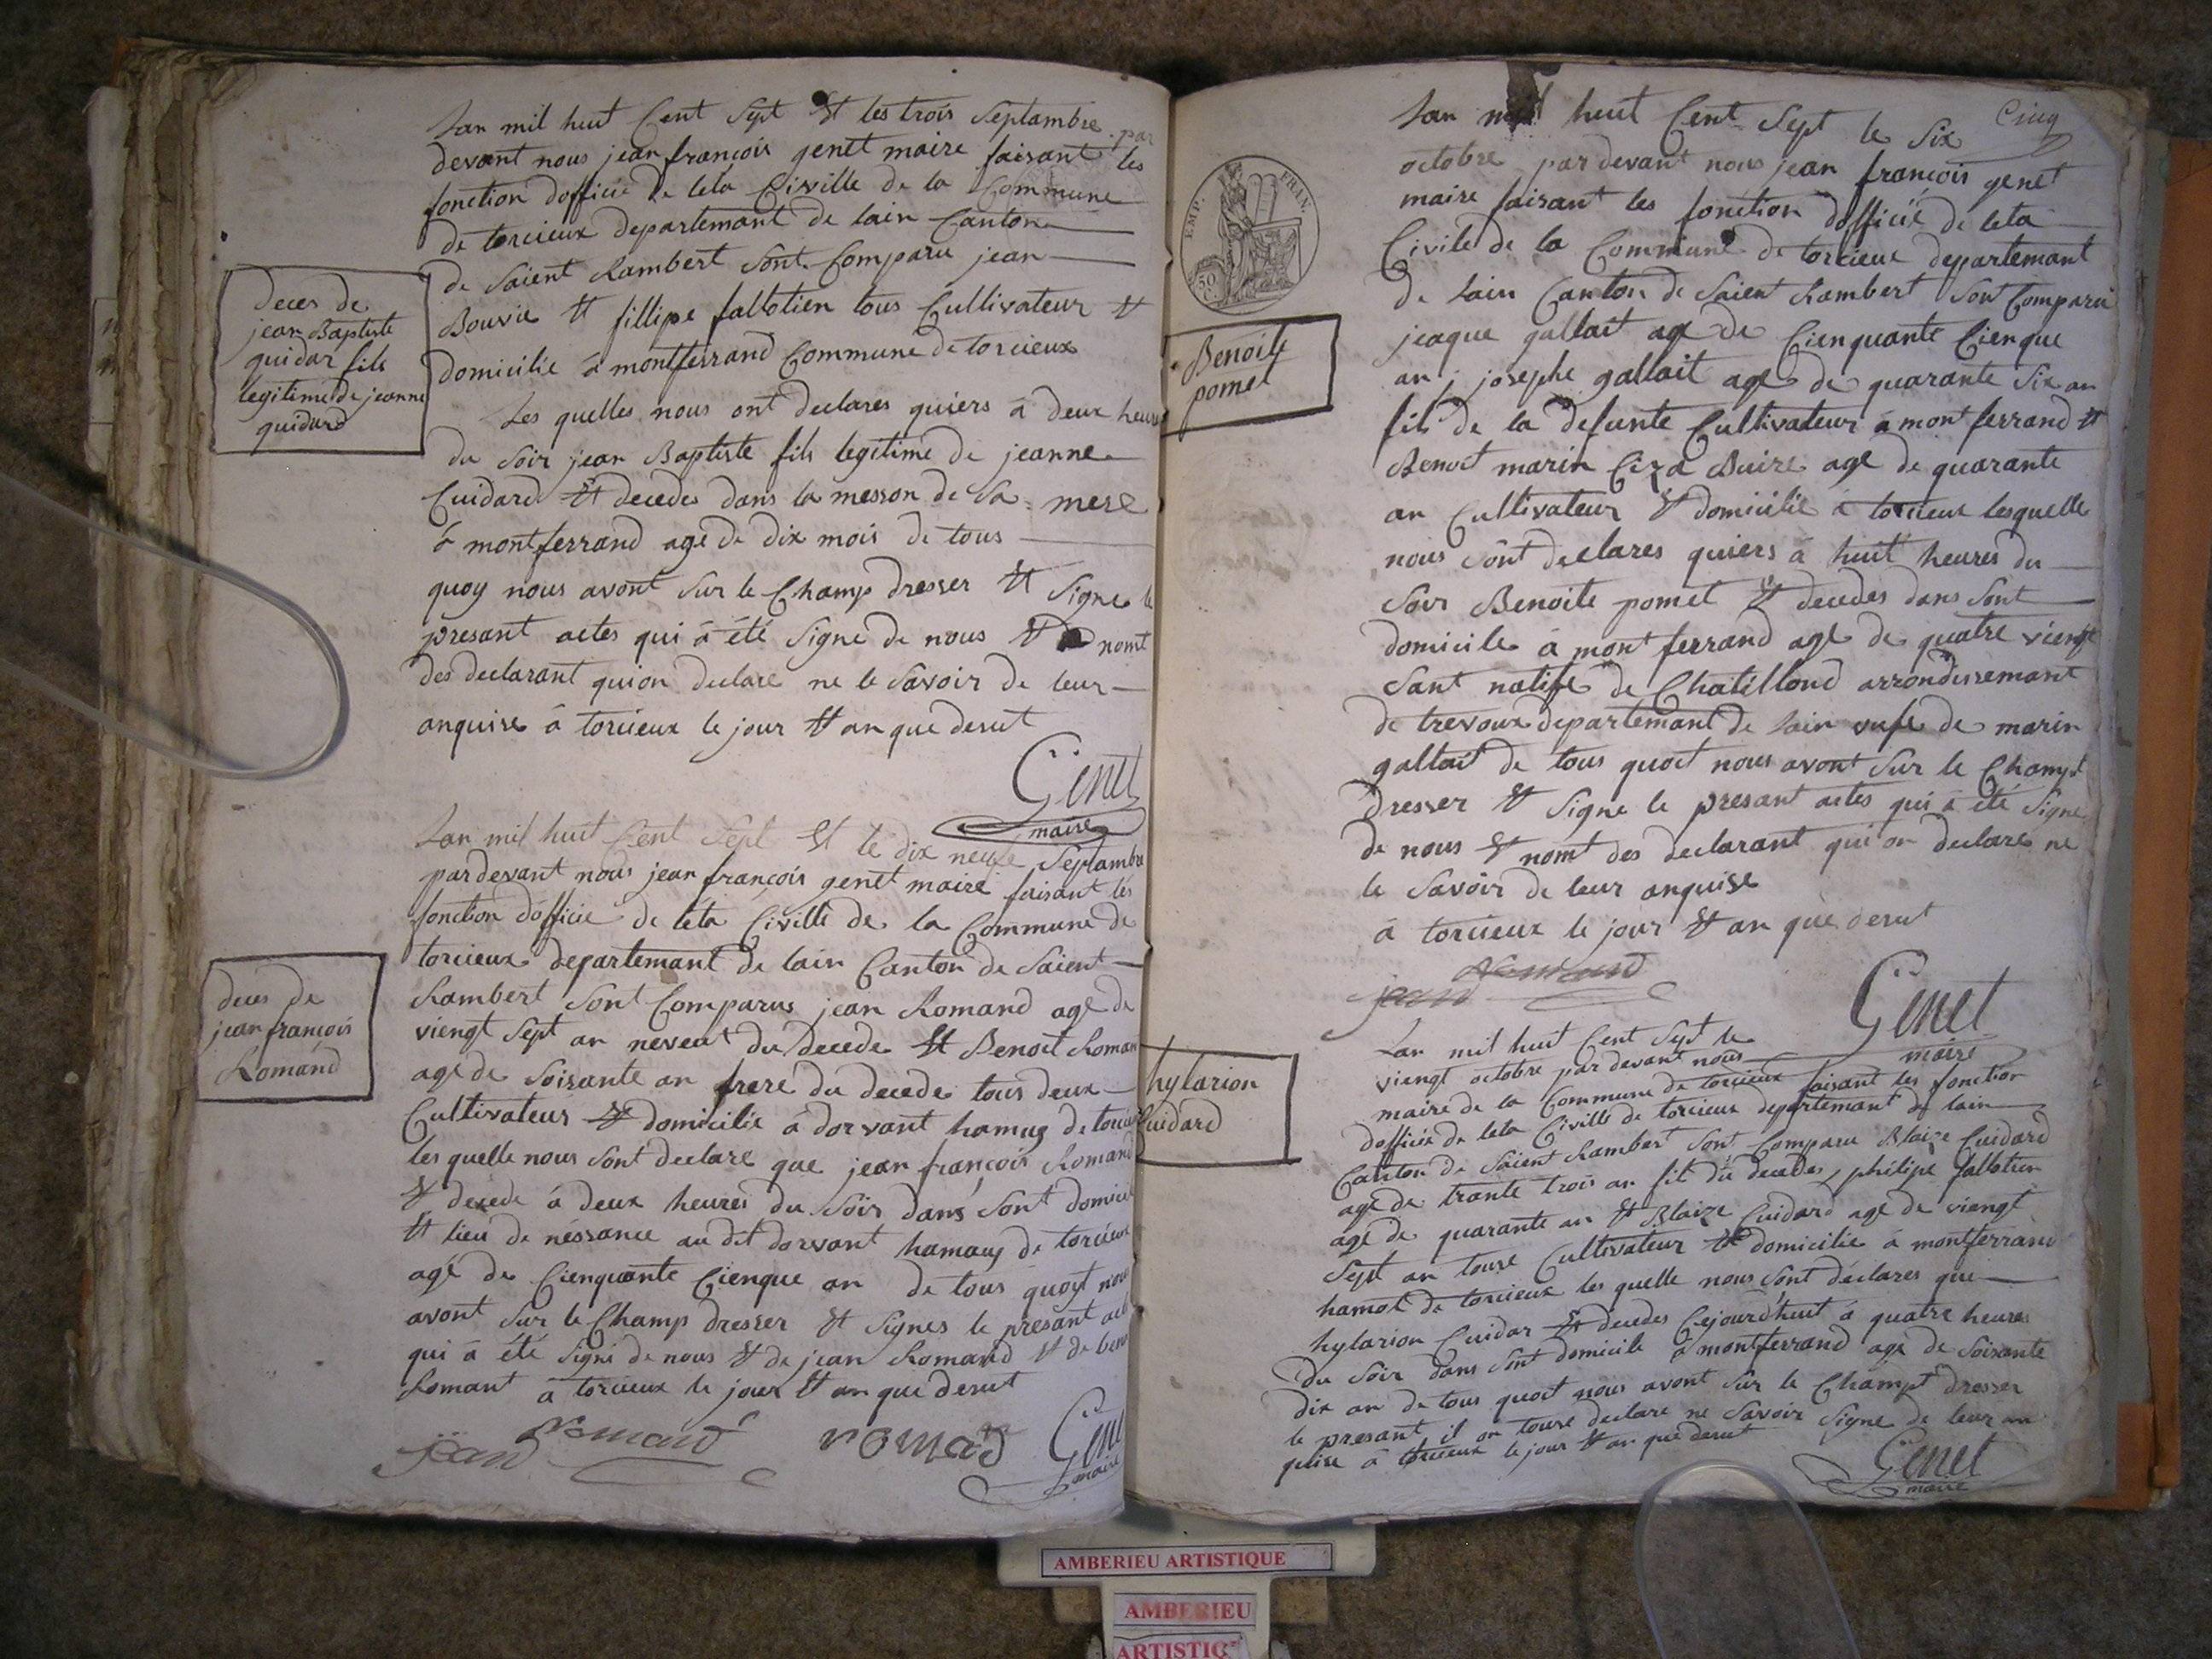 Lan mil huit Cent Sept Et les trois Septambre par
devant nous jean françois genet maire faisant les
fonction dofficie de leta Civille de la Commune
de torcieux departemant de lain Canton
de Saient Rambert Sont Comparu jean
Bouvie Et fillipe fallotien tous Cultivateur Et
domicilie á montferrand Commune de torcieux
deces de
jean Baptiste
guidar fils
legitime de jeanne
guidard
Les quelles nous ont declares quiers á deux heures
du Soir jean Baptiste fils legitime de jeanne
Cuidard Et decedes dans la messon de Sa mere
á montferrand age de dix mois de tous
quoy nous avont Sur le Champ dresser Et Signe le
presant actes qui á été Signe de nous Et nomt
des declarant quion declare ne le Savoir de leur
anquise á torcieux le jour Et an que desut
Genet
maire
Lan mil huit Cent Sept Et le dix neufe Septambre
pardevant nous jean françois genet maire faisant les
fonction dofficie de leta Civille de la Commune de
torcieux departemant de lain Canton de Saient
Rambert Sont Comparus jean Romand age de
viengt Sept an neveut du decede Et Benoit Roman
age de Soisante an frere du decede tous deux
Cultivateurs Et domicilie á dorvant hamug de torcieux
deces de
jean françois
Romand
les quelle nous Sont declare que jean françois Romand
Et decede á deux heures du Soir dans Sont domicil
Et lieu de néssance au dit dorvant hamaug de torcieux
agé de Cienquante Cienque an de tous quoyt nous
avont Sur le Champ dresser Et Signes le présant acte
qui á été Signé de nous Et de jean Romand Et de beno
Romant á torcieux le jour Et an que desut
jean Romand romad Genet
maire
Cinq
Lan mil huit Cent Sept le Six
octobre pardevant nous jean françois genet
maire faisant les fonction dofficié de leta
Civile de la Commune de torcieux departemant
de Lain Canton de Saient Rambert Sont Comparu
EMP. FRAN.
50
Benoite
pomet
jeaque gallait age de Cienquante Cienque
an, josephe gallait age de quarante Six an
fils de la defunte Cultivateur á mont ferrand Et
Benoit marin Buire age de quarante
an Cultivateur Et domicilie á torcieux lesquelle
nous Sont declares quiers á huit heures du
Soir Benoite pomet Et decedes dans Sont
domicile á mont ferrand age de quatre viengt
Sant natife de Chatillond arrondissemant
de trevoux departemant de Lain vufe de marin
gallait de tous quoit nous avont Sur le Champt
dresser Et Signe le presant actes qui á été Signe
de nous Et nomt des declarant qui on declare ne
le Savoir de leur anquise
á torcieux le jour Et an que desut
jean Romand
Genet
maire
hylarion
Cuidard
Lan mil huit Cent Sept le
viengt octobre par devant nous
maire de la Commune de torcieux faisant les fonction
dofficié de leta Civille de torcieux departemant de lain
Canton de Saient Rambert Sont Comparu Blaize Cuidard
age de trante trois an fil du decedes, philipe fallotien
age de quarante an Et Blaize Cuidard age de viengt
Sept an touse Cultivateur Et domicilie á montferrand
hamot de torcieux les quelle nous Sont déclares que
hylarion Cuidar Et decedes Cejourdhuit á quatre heures
du Soir dans Sont domicile á montferrand age de Soisante
dix an de tous quoit nous avont Sur le Champt dresser
le presant il on touse declare ne Savoir Signe de leur an
quise á torcieux le jour Et an que desut
Genet
maire
AMBERIEU ARTISTIQUE
AMBERIEU
ARTISTIQ